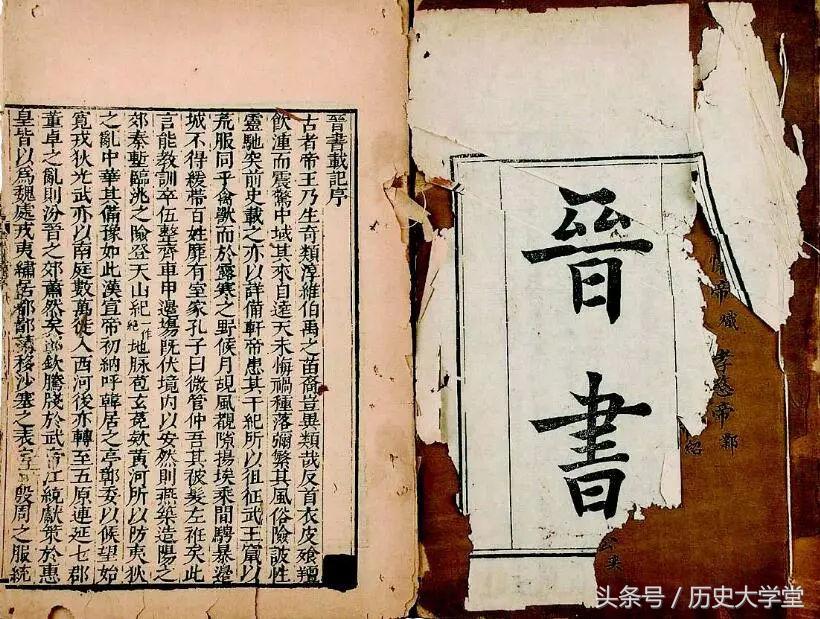 晉書載記序
古者帝王乃生奇類淳維伯禹之苗裔豈異類哉反首衣皮飡羶
飲湩而震驚中域其來自遠天未悔禍種落彌繁其風俗險詖性
靈馳突前史載之亦以詳備軒帝患其干紀所以徂征武王竄以
荒服同乎禽獸而於露寒之野候月覘風覩隙揚埃乘間騁暴邊
城不得緩帶百姓靡有室家孔子曰微管仲吾其被髮左袵矣此
言能教訓卒伍整齊車甲邊場既伏境內以安然則燕築造陽之
郊秦塹臨洮之險登天山紀一作絕地脉苞玄菟欵黃河所以防夷狄
之亂中華其備豫如此漢宣帝初納呼韓居之亭鄣委以候望始
寬戎狄光武亦以南庭數萬徙入西河後亦轉至五原連延七郡
董卓之亂則汾晉之郊蕭然矣郭欽騰牋於武帝江統獻策於惠
皇皆以爲魏處戎夷繡居都鄙請移沙塞之表殷周之服統
晉書
帝熾孝愍帝鄴
紹
头条号 / 历史大学堂